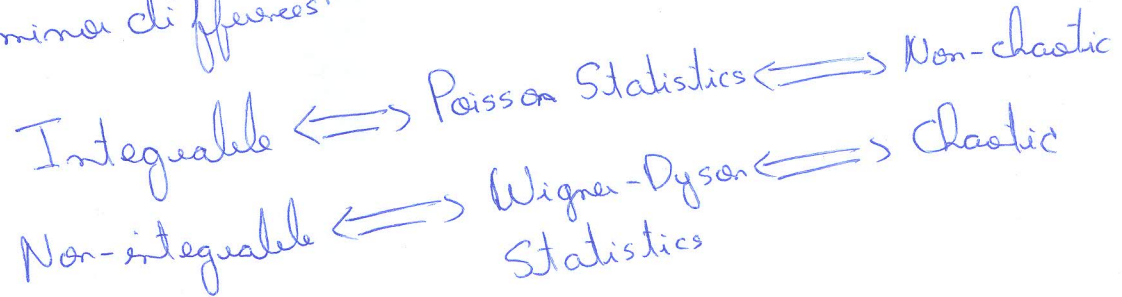 minor differences.
Integrable <=> Poisson Statistics <=> Non-chaotic
Non-integrable <=> Wigner-Dyson <=> Chaotic
Statistics